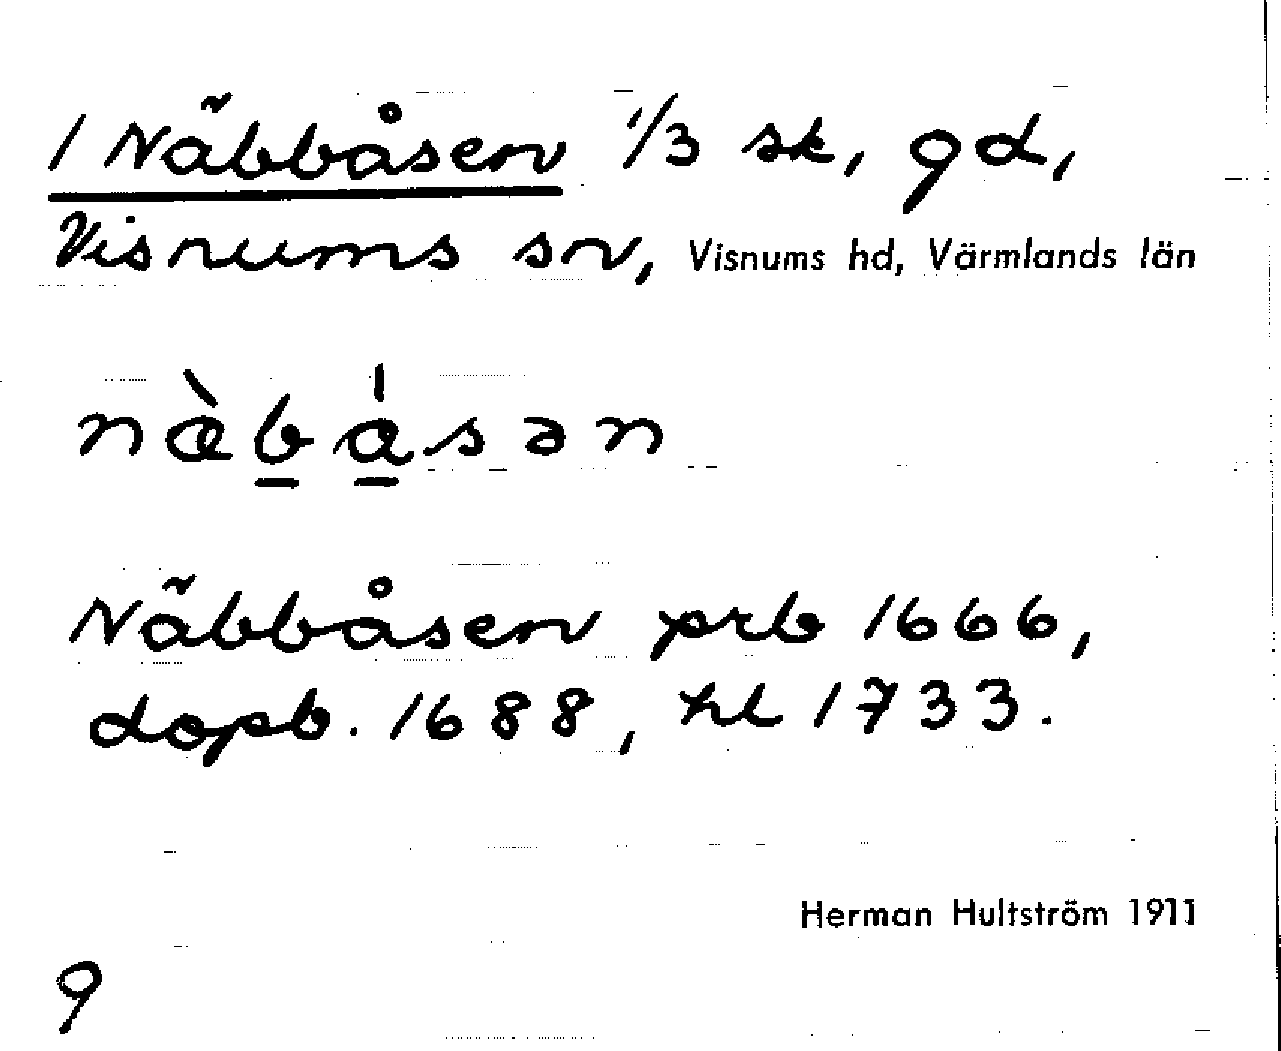 1 Näbbåsen 1/3 sk, gd,
Visnums sn, Visnums hd, Värmlands län
næ̀b̲ǻ̲sən
Näbbåsen prb 1666,
dopb. 1688, hl 1733.
Herman Hultström 1911
9